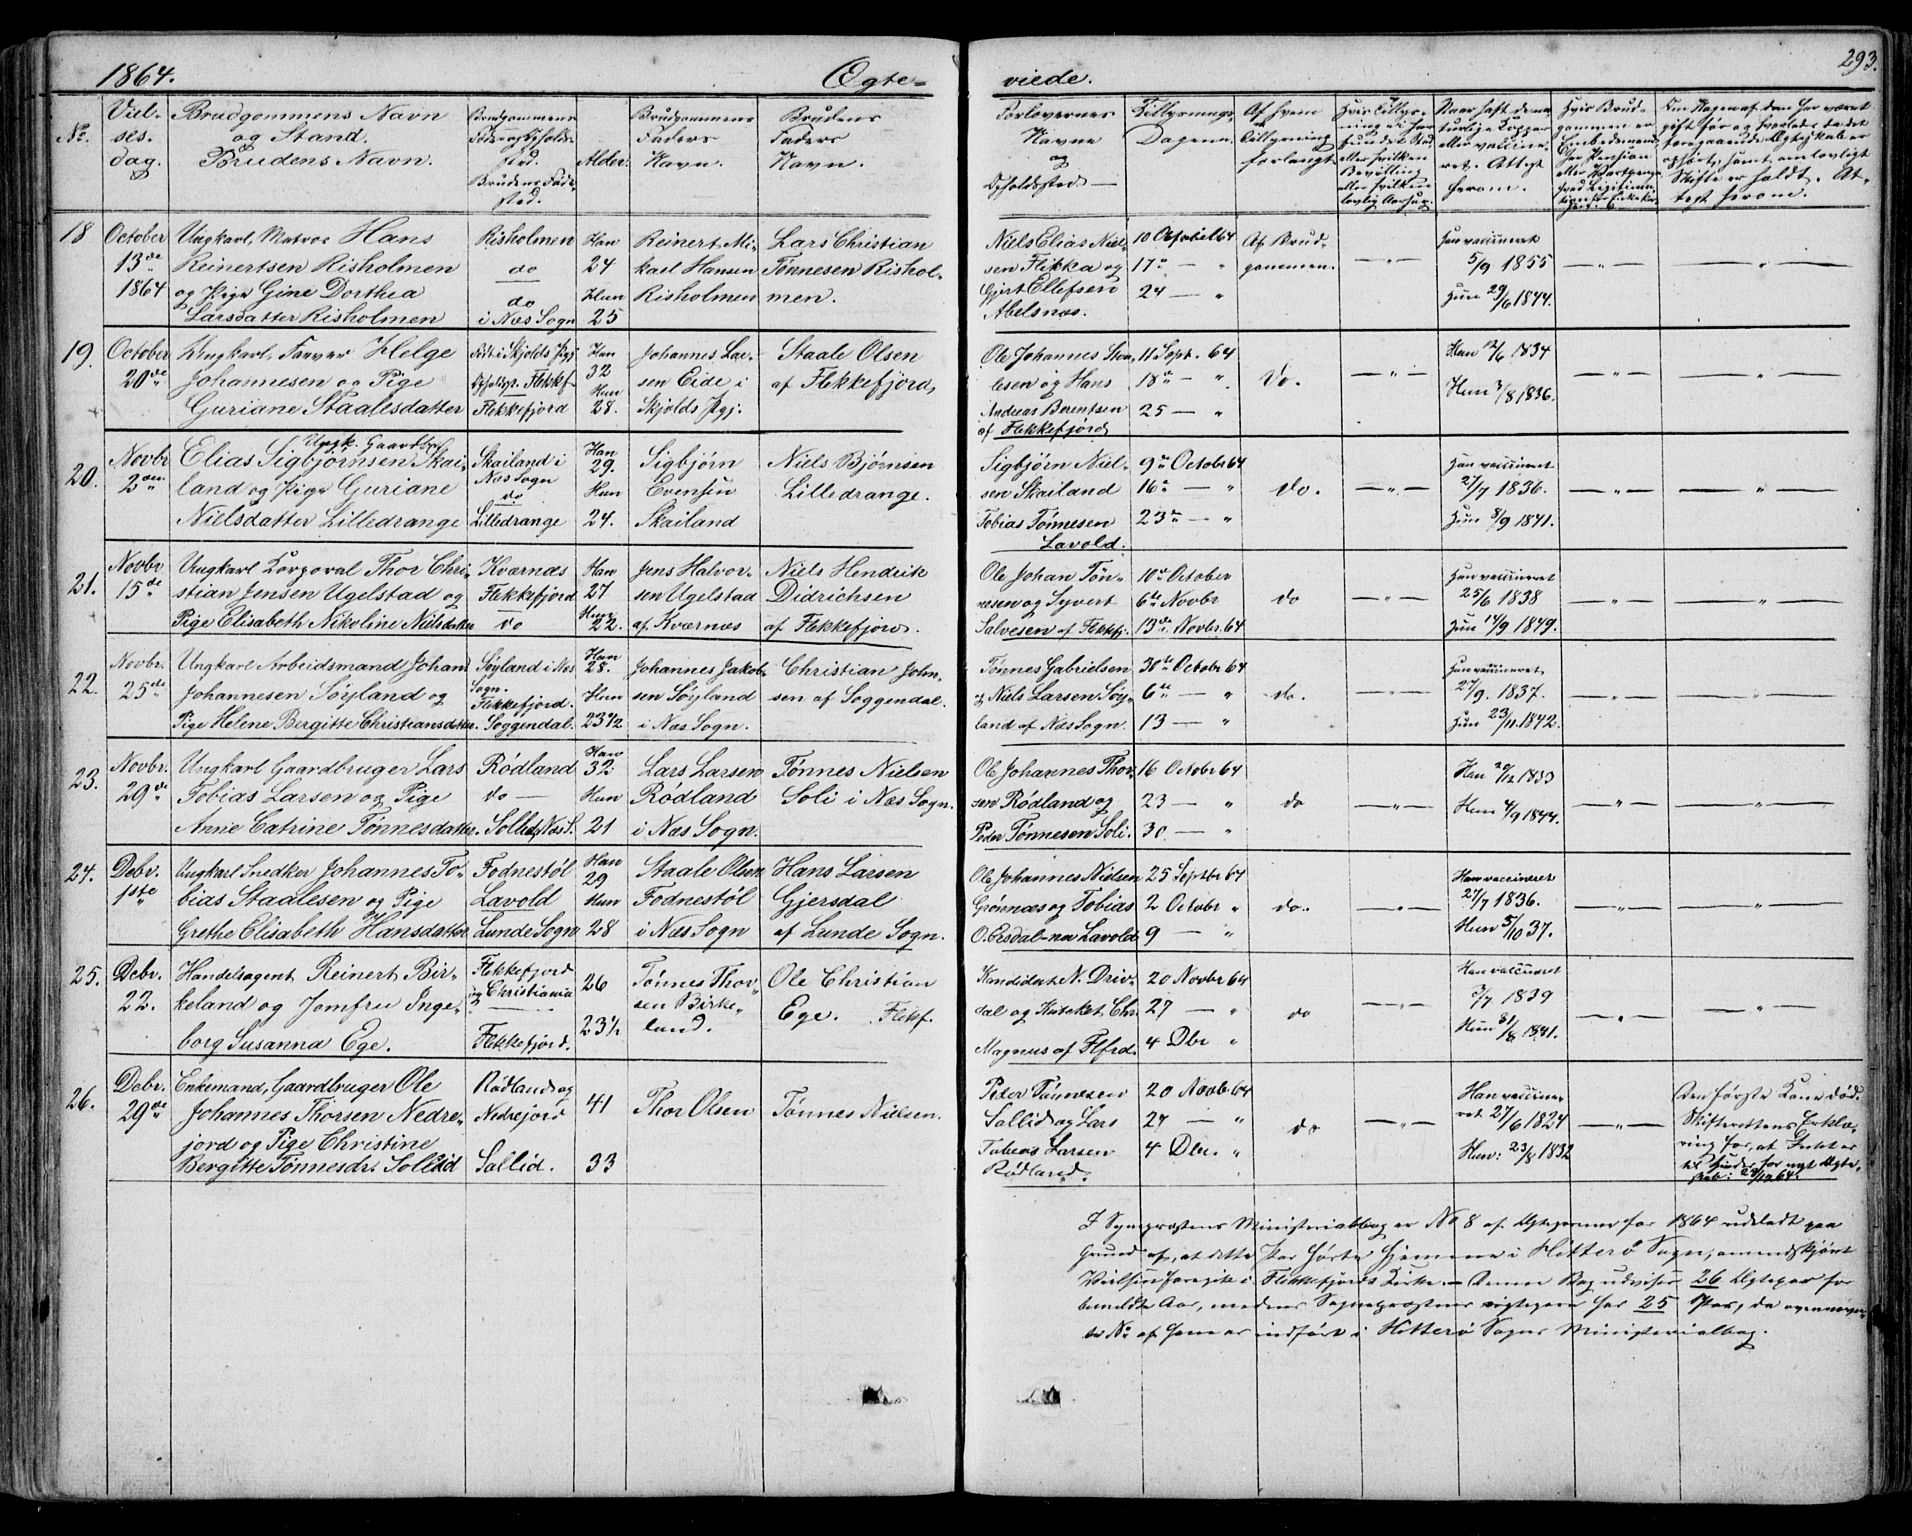 1864. Ægte- viede. 293.
No.
Viel-
ses.
dag.
Brudgommens Navn
og Stand.
Brudens Navn.
Brudgommens
Føde- og Opholds-
sted.
Brudens Føde-
sted.
Alder.
Brudgommens
Faders
Navn.
Brudens
Faders
Navn.
Forlovernes
Navne
og
Opholdssted
Tillysnings-
Dagene.
Af hvem
Tillysning
forlangt.
18 October
13de
1864
Ungkarl, Matros Hans
Reinertsen Risholmen
og Pige Gine Dorthea
Larsdatter Risholmen
Risholmen
do
do
i Næs Sogn
Han
24
Hun
25
Reinert Mi-
kael Hansen
Risholmen
Lars Christian
Tønnesen Rishol-
men.
Niels Elias Niel-
sen Flikka og
Gjert Ellefsen
Abelsnæs.
10 October 64
17de — "
24 — "
Af Brud-
gommen.
— " —
Han vaccineret
5/9 1855
Hun 29/6 1844.
— " —
— " —
19. October
20de
Ungkarl, Farver Helge
Johannesen og Pige
Guriane Staalesdatter
Født i Skjolds Pgj
Opholdst. Flekkef.
Flekkefjord
Han
32
Hun
28.
Johannes Lar-
sen Eide i
Skjolds Pgj.
Staale Olsen
af Flekkefjord,
Ole Johannes Staa-
lesen og Hans
Andreas Berentsen
af Flekkefjord
11 Sept. 64
18de — "
25 — "
Do.
— " —
Han 12/6 1834
Hun 3/8 1836.
— " —
— " —
20. Novbr
2den
Ungk. Gaardbr.
Elias Sigbjørnsen Skai-
land og Pige Guriane
Nielsdatter Lilledrange
Skailand i
Næs Sogn
do
Lilledrange
Han
29.
Hun
24.
Sigbjørn
Evensen
Skailand
Niels Bjørnsen
Lilledrange.
Sigbjørn Niel-
sen Skailand
Tobias Tønnesen
Lavold.
9de Octobr 64
16de — "
23de — "
do.
— " —
Han vaccineret
27/7 1836.
Hun 8/9 1841.
— " —
— " —
21. Novbr
15de
Ungkarl Korporal Thor Chri-
stian Jensen Ugelstad og
Pige Elisabeth Nikoline Nielsdatter
Kværnæs
Flekkefjord
do
Han
27
Hun
22.
Jens Halvor-
sen Ugelstad
af Kværnæs
Niels Hendrik
Didrichsen
af Flekkefjord.
Ole Johan Tøn-
nesen og Syvert
Salvesen af Flekkfj.
10de October
6te Novbr
13de Novbr. 64
do
— " —
Han vaccineret
25/6 1838
Hun 14/9 1849.
— " —
— " —
22. Novbr.
25de
Ungkarl Arbeidsmand Johan
Johannesen Søyland og
Pige Helene Bergitte Christiansdatter.
Søyland i Næs
Sogn.
Flekkefjord.
Soggendal.
Han
28.
Hun
23 1/2
Johannes Jakob-
sen Søyland
i Næs Sogn.
Christian John-
sen af Soggendal.
Tønnes Gabrielsen
og Niels Larsen Søy-
land af Næs Sogn.
30te Octobr 64
6te — "
13 — "
do.
— " —
Han vaccineret
27/9. 1837.
Hun 23/11. 1842.
— " —
— " —
23. Novbr.
29de
Ungkarl Gaardbruger Lars
Tobias Larsen og Pige
Anne Catrine Tønnesdatter.
Rødland
do —
Sollid, Næs S.
Han
32.
Hun
21
Lars Larsen
Rødland
i Næs Sogn.
Tønnes Nielsen
Soli i Næs Sogn.
Ole Johannes Thor-
sen Rødland og
Peder Tønnesen Soli.
16 Octobr 64
23 — "
30 — "
do
— " —
Han 20/12 1833
Hun 4/9 1844.
— " —
— " —
24. Debr.
1ste
Ungkarl Snedker Johannes To-
bias Staalesen og Pige
Grethe Elisabeth Hansdatter
Fodnestøl
Lavold
Lunde Sogn
Han
29
Hun
28
Staale Olsen
Fodnestøl
i Næs Sogn
Hans Larsen
Gjersdal
af Lunde Sogn.
Ole Johannes Nielsen
Grønnæs og Tobias
Lavold
25 Septbr 64
2 Octobr "
9 — "
do.
— " —
Han vaccineret
27/7 1836.
Hun 5/10 37.
— " —
— " —
25. Debr.
22.
Handelsagent Reinert Bir-
keland og Jomfru Inge-
borg Susanna Ege.
Flekkefjord
og Christiania
Flekkefjord.
26
23 1/2
Tønnes Thor-
sen Birke-
land.
Ole Christian
Ege. Flekf.
Kandidat N. Driv-
dal og Chr.
Magnus af Flfrd.
20 Novbr 64
27 — "
4 Dbr "
do
— " —
Han vaccineret
3/7 1839
Hun 31/8 1841.
— " —
— " —
26. Debr.
29de
Enkemand, Gaardbruger Ole
Johannes Thorsen Nedre-
jord og Pige Christine
Bergitte Tønnesdr. Sollid
Rødland og
Nedrejord
Sollid.
41
33
Thor Olsen
Tønnes Nielsen.
Peder Tønnesen
Sollid og Lars
Tobias Larsen
Rødland.
20 Novb 64
27 — "
4 Dbr. "
do
— " —
Han vaccine-
ret 27/6 1824
Hun: 23/8 1832
— " —
Den første Kone død.
Skifterettens Erklæ-
ring for, at Intet er
til Hinder for nyt Ægte-
skab: 29/12 64.
I Sognepræstens Ministerialbog er No 8 af Ægteparrene for 1864 udeladt paa
Grund af, at dette Par hørte hjemme i Hitterø Sogn, omendskjønt
Vielsen foregik i Flekkefjords Kirke. — Denne Bog udviser 26 Ægtepar for
bemeldte Aar, medens Sognepræstens rigtigere har 25 Par, da ovennævn-
te No. af ham er indført i Hitterø Sogns Ministerialbog.